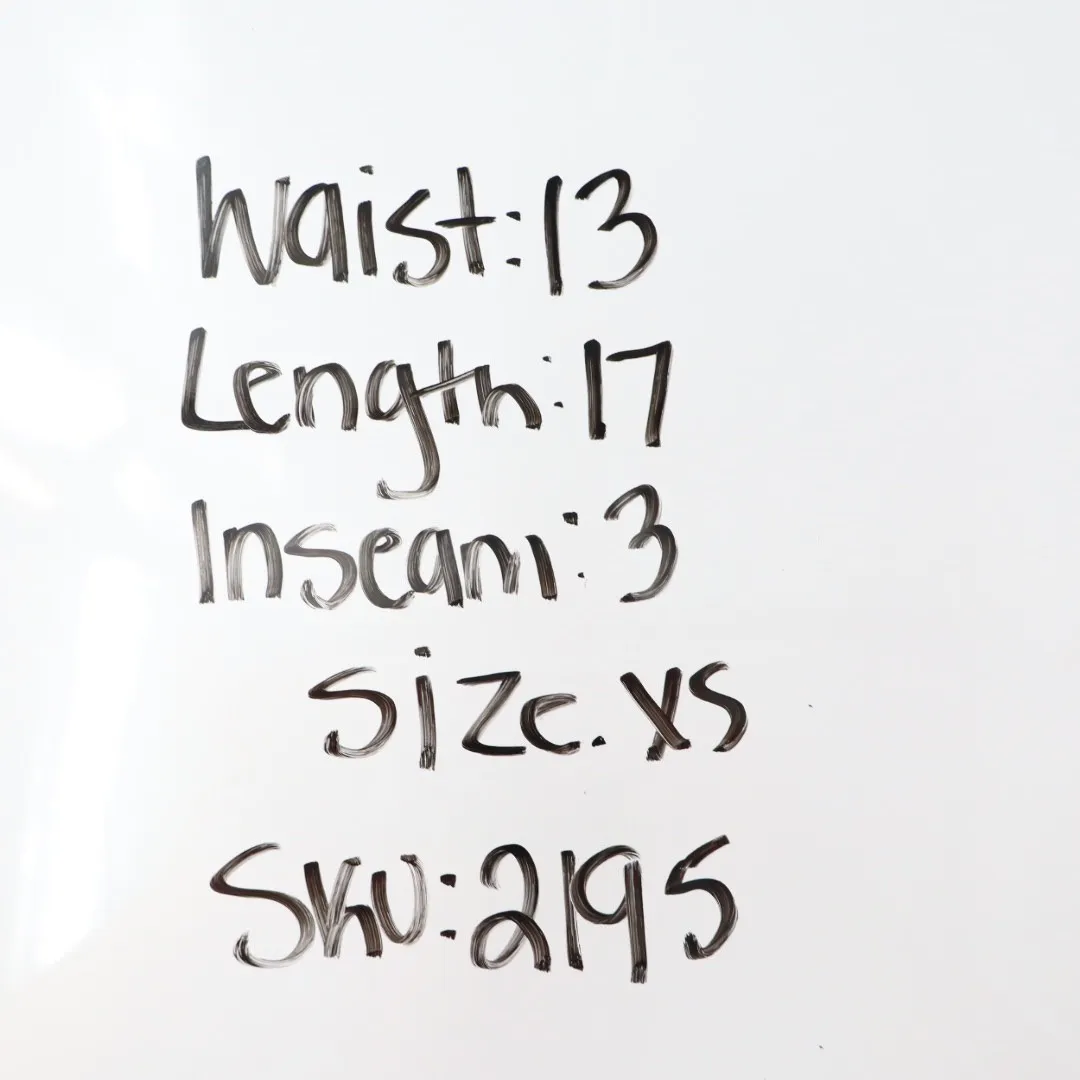 Waist: 13
Length: 17
Inseam: 3
Size. XS
SKU: 2195